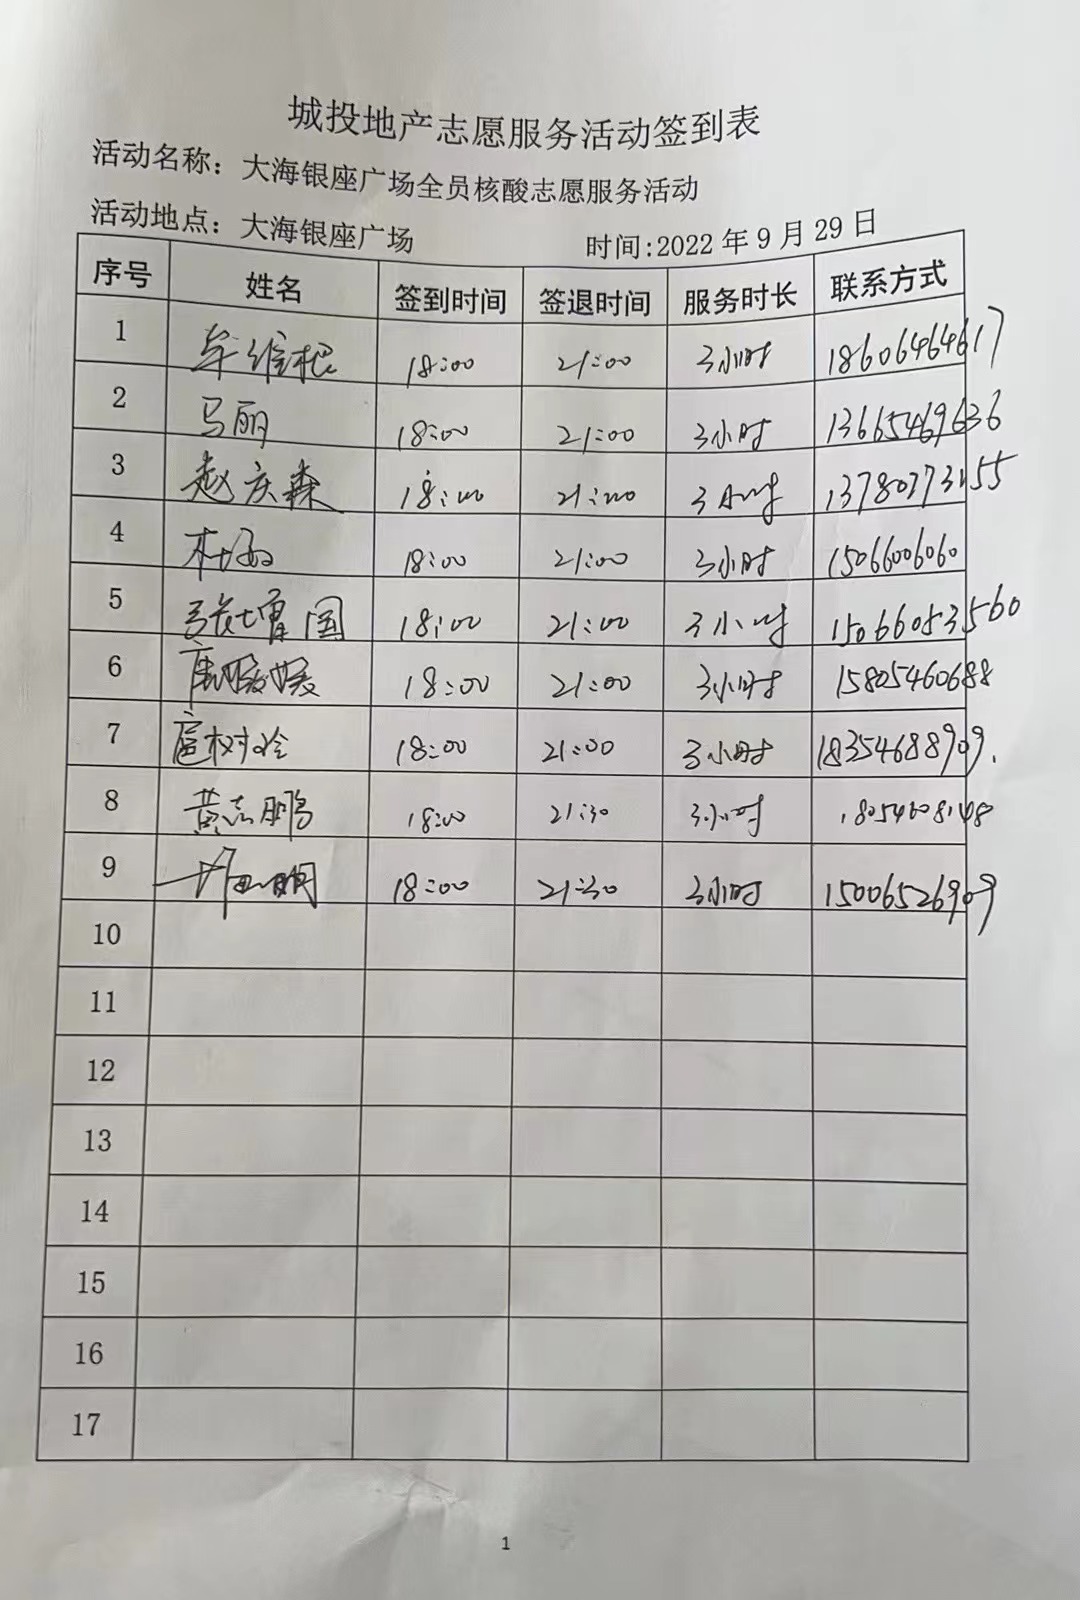 城投地产志愿服务活动签到表
活动名称：大海银座广场全员核酸志愿服务活动
活动地点：大海银座广场 时间:2022年9月29日
序号 姓名 签到时间 签退时间 服务时长 联系方式
1 牟维根 18:00 21:00 3小时 18606464617
2 马丽 18:00 21:00 3小时 13665469636
3 赵庆森 18:00 21:00 3小时 13780773155
4 18:00 21:00 3小时 15066006060
5 张增国 18:00 21:00 3小时 15066053560
6 18:00 21:00 3小时 15805460688
7 扈树玲 18:00 21:00 3小时 18354688909.
8 黄志鹏 18:00 21:30 3小时 18054608148
9 18:00 21:30 3小时 15006526909
10
11
12
13
14
15
16
17
1